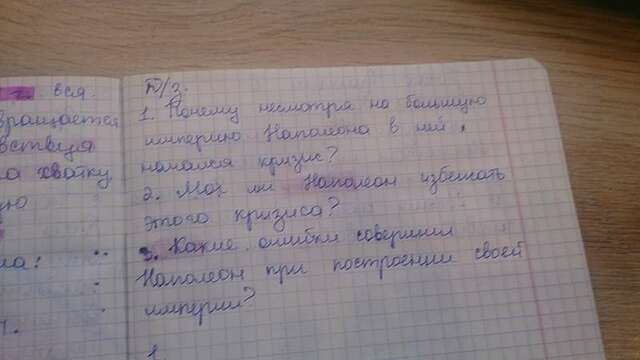 г. вся.
вращается
вствия
хватку
ую
ла:
Д/з.
1. Почему несмотря на большую
империю Наполеона в ней
начался кризис?
2. Мог ли Наполеон избежать
этого кризиса?
3. Какие ошибки совершил
Наполеон при построении своей
империи?
1.